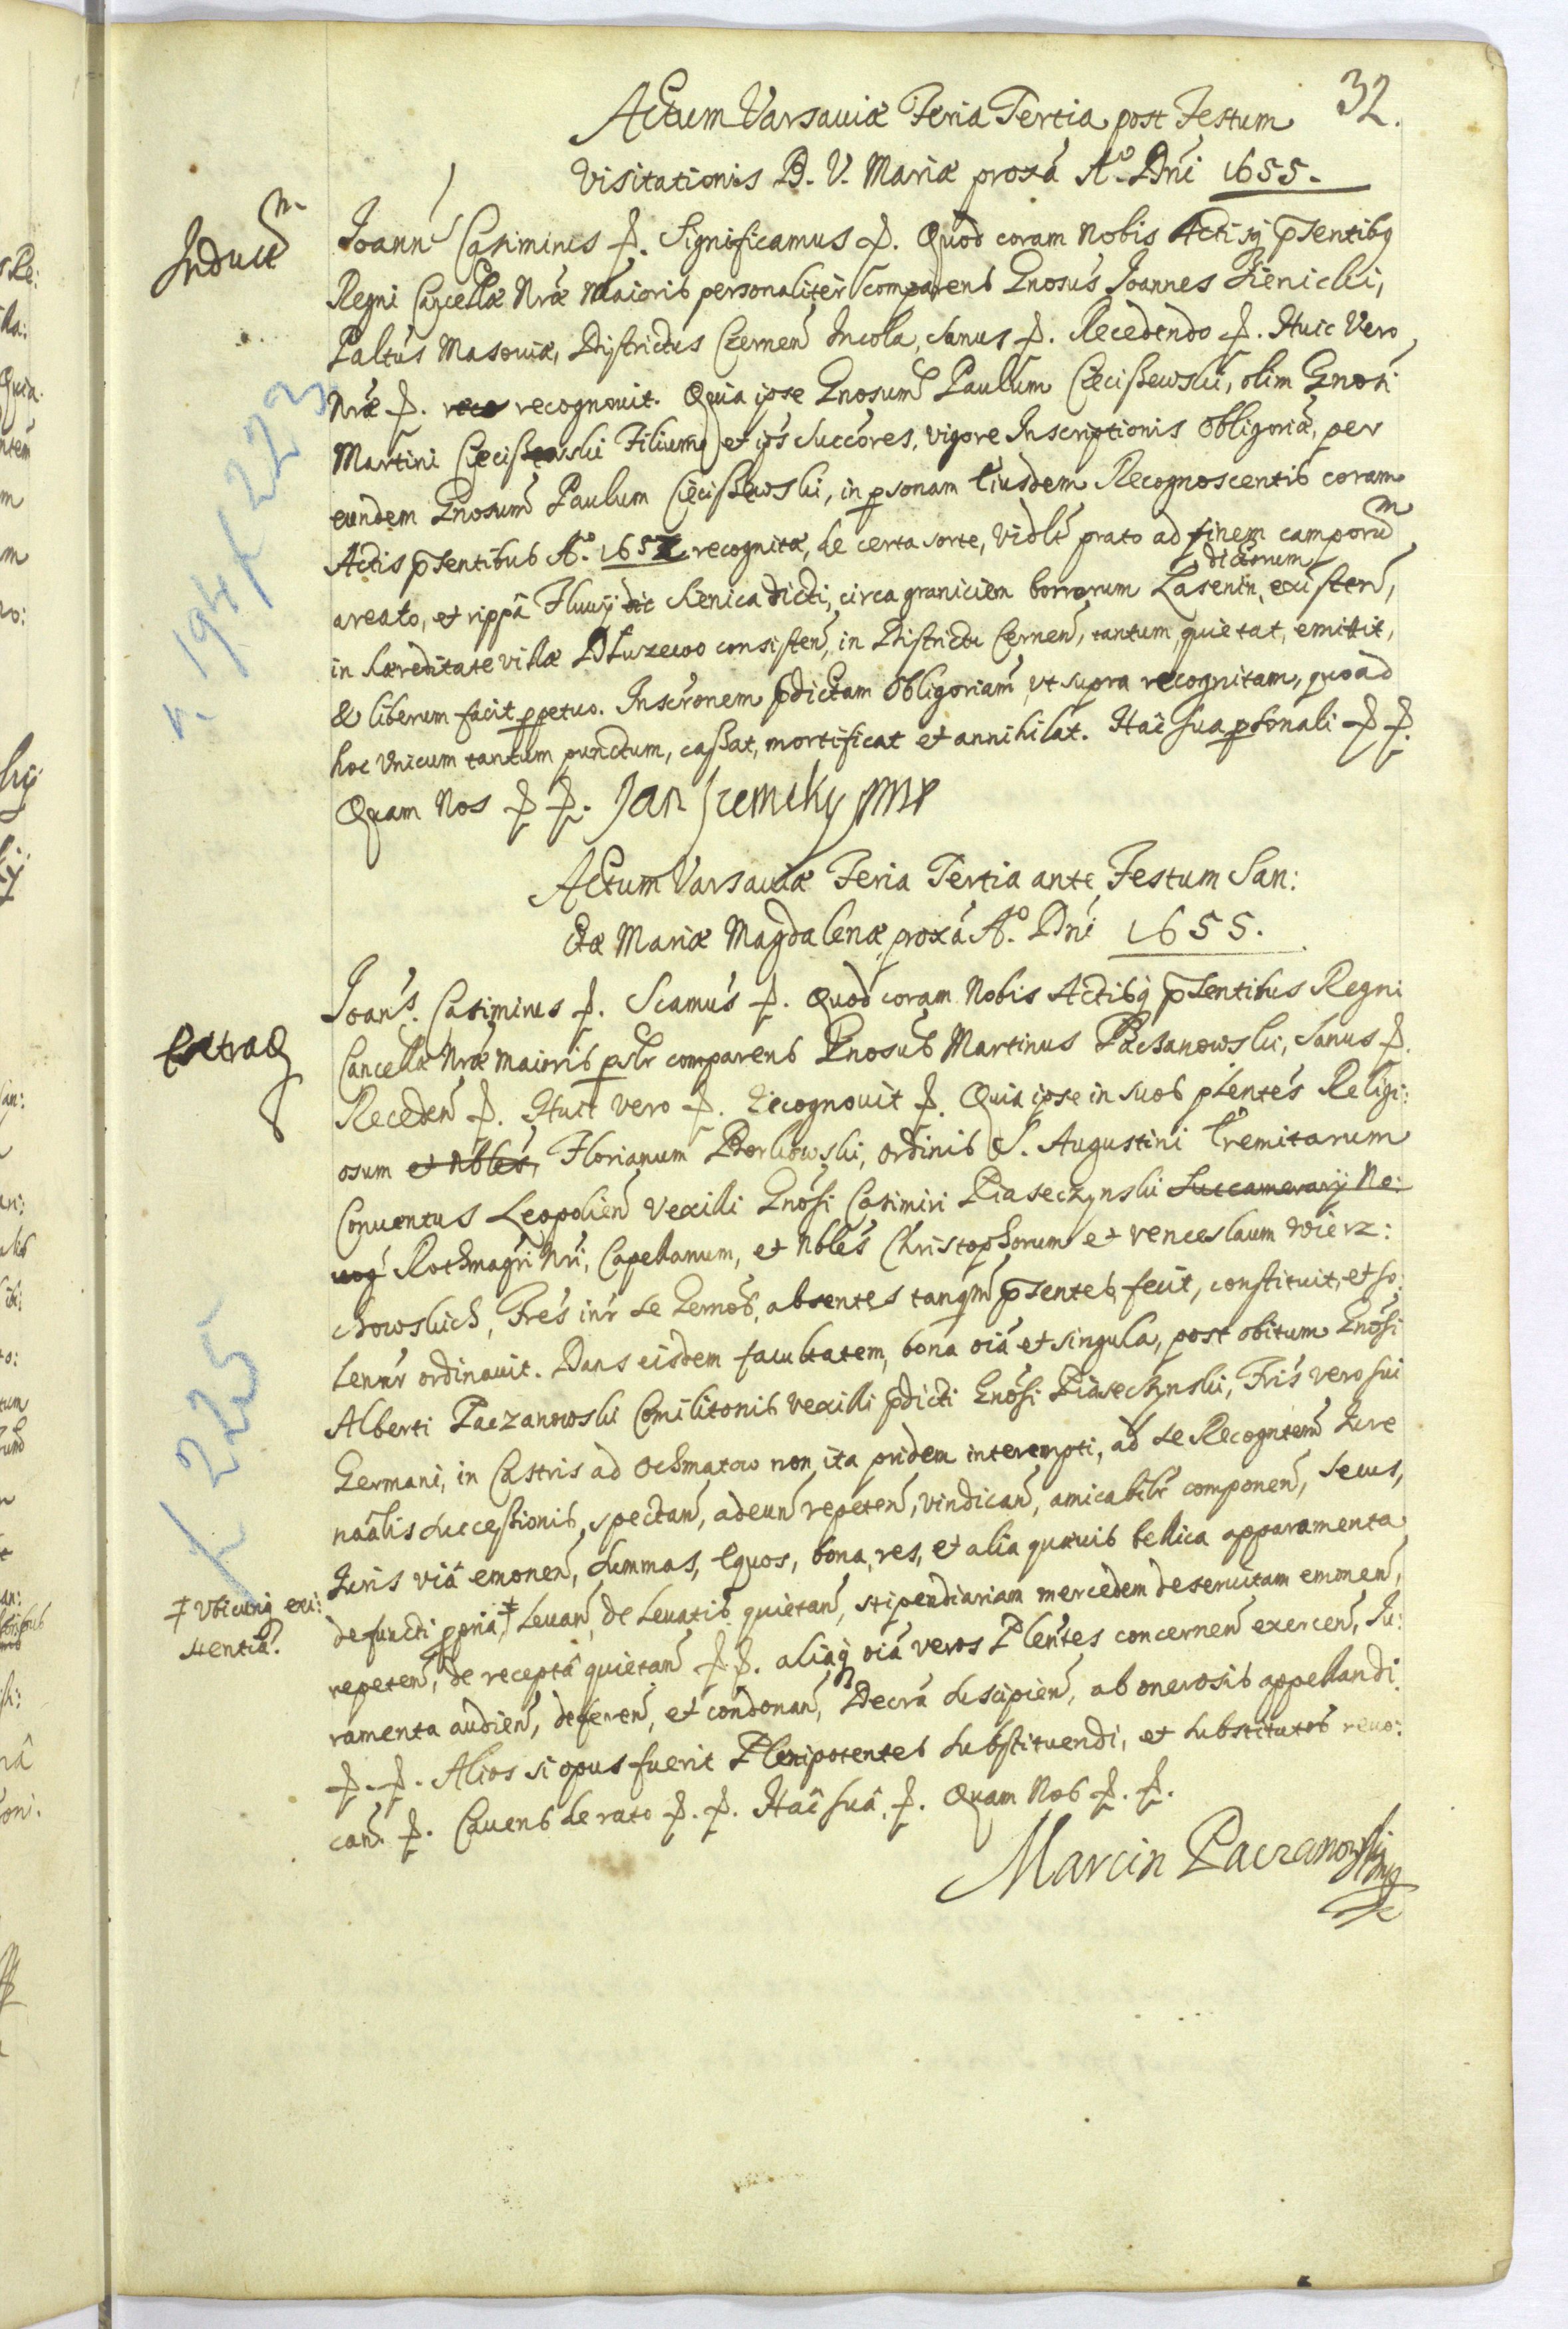 32.
Actum Varsauiæ Feria Tertia post Festum
Visitationis B. V. Mariæ proxá A.º Dñi 1655.
Induct m.
Joann Casimirus Significamus Quod coram Nobis Actisq pñtentibq
Regni Cancellæ Nræ Maioris personaliter comparens Gnosus Joannes Zienicki,
Paltus Masouiæ, Districtus Czernen Incola, Sanus Recedendo Huic Vero
Nræ reco recognouit. Quia ipse Gnosum Paulum Cieciszewski, olim Gnosi
Martini Cieciszewski Filium et ips Succores, vigore Inscriptionis Obligoriæ, per
eundem Gnosum Paulum Cieciszewski, in psonam Eiusdem Recognoscentis coram
Actis psentibus A.º 1652 recognitæ, de certa sorte, vidlt prato ad finem camporum
areato, et rippâ Fluuij dic Sienica dicti, circa graniciem borrarum dictorum Lasenin, existen,
in hæreditate villæ Dłuzewo consisten, in Districtu Cernen, tantum, quietat, emittit,
& liberum facit ppetuo. Inscronem pdictam Obligoriam, ut supra recognitam, quoad
hoc vnicum tantum punctum, cassat, mortificat et annihilat. Hac sua psonali
Quam Nos Jan mp
Actum Varsauiæ Feria Tertia ante Festum San:
ctæ Mariæ Magdalenæ, proxá A.º Dñi 1655.
Extrad
Joans. Casimirus Scamus Quod coram Nobis Actibq psentibus Regni
Cancellæ Nræ Maioris pslr comparens Gnosus Martinus Paczanowski, Sanus
Receden Huic vero Recognouit Quia ipse in suos plentes Religi:
osum et Nbles, Florianum Borkowski, Ordinis S. Augustini Eremitarum
Conuentus Leopolien Vexilli Gnosi Casimiri Piaseczynski Succamerarij No:
uog Rothmagri Nri, Capellanum, et Nbles Christophorum et Venceslaum Wierz:
chowskich, Fres inr se Gernos, absentes tanqm psentes, fecit, constituit, et so:
lennr ordinauit. Dans eisdem facultatem, bona oia et singula, post obitum Gnosi
Alberti Paczanowski Comilitonis Vexilli pdicti Gnosi Piaseczynski, Fris vero sui
Germani, in Castris ad Ochmatow non ita pridem interempti, ad se Recogntem Jure
naalis Successionis, spectan, adeun, repeten, vindican, amicabilr componen, Secus,
Juris viâ emonen, Summas, Equos, bona, res, et alia quæuis bellica apparamenta
defuncti ppria, ‡ Leuan, de Leuatis quietan, stipendiariam mercedem deseruitam emmen,
‡ Vbicunq exi:
stentia.
repeten, de receptâ quietan aliaq oia veros Plentes concernen exercen, Ju:
ramenta audien, deferen, et condonan, Decra suscipien, ab onerosis appellandi.
Alios si opus fuerit Plenipotentes substituendi, et substitutos reuo:
can. Cauens de rato Hac suâ. Quam Nos
Marcin Paczanowski mp
194 223
225